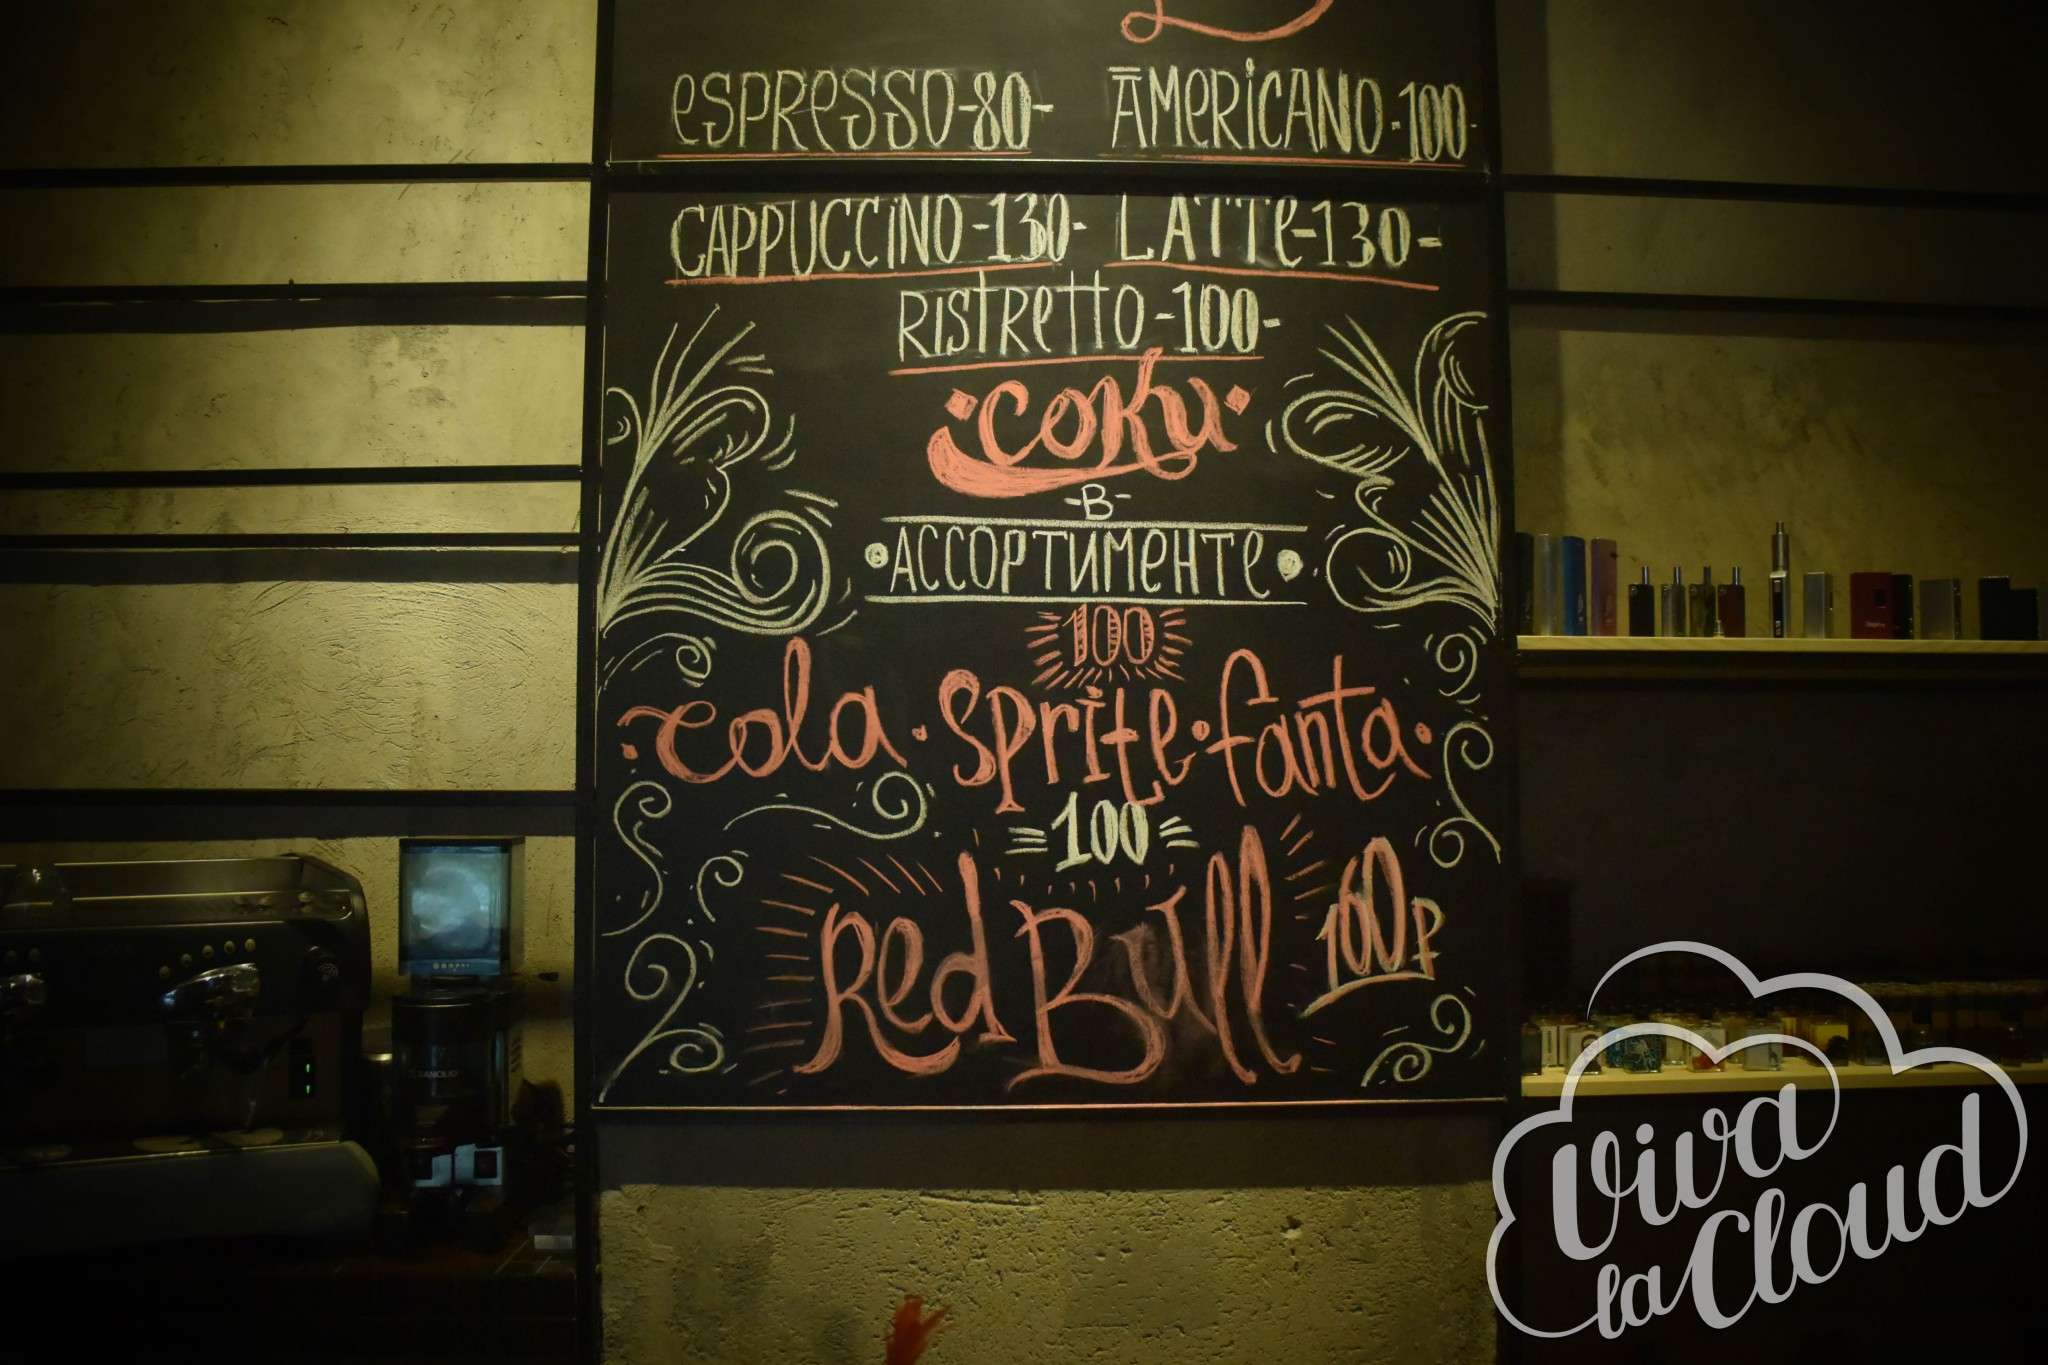 espresso-80- Americano-100-
Cappuccino-130- Latte-130-
Ristretto-100-
·соки·
-в-
•Ассортименте•
100
·cola·sprite·fanta·
=100=
Red Bull 160₽
Viva
la Cloud